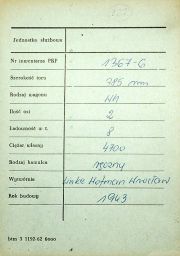 Jednostka służbowa
Nr inwentarza PKP 1367-G
Szerokość toru 785 mm
Rodzaj wagonu Wh
Ilość osi 2
Ładowność w t. 8
Ciężar własny 4700
Rodzaj hamulca ręczny
Wytwórnia Linke Hofman Wrocław
Rok budowy 1943
btm 3 1192-62 6000